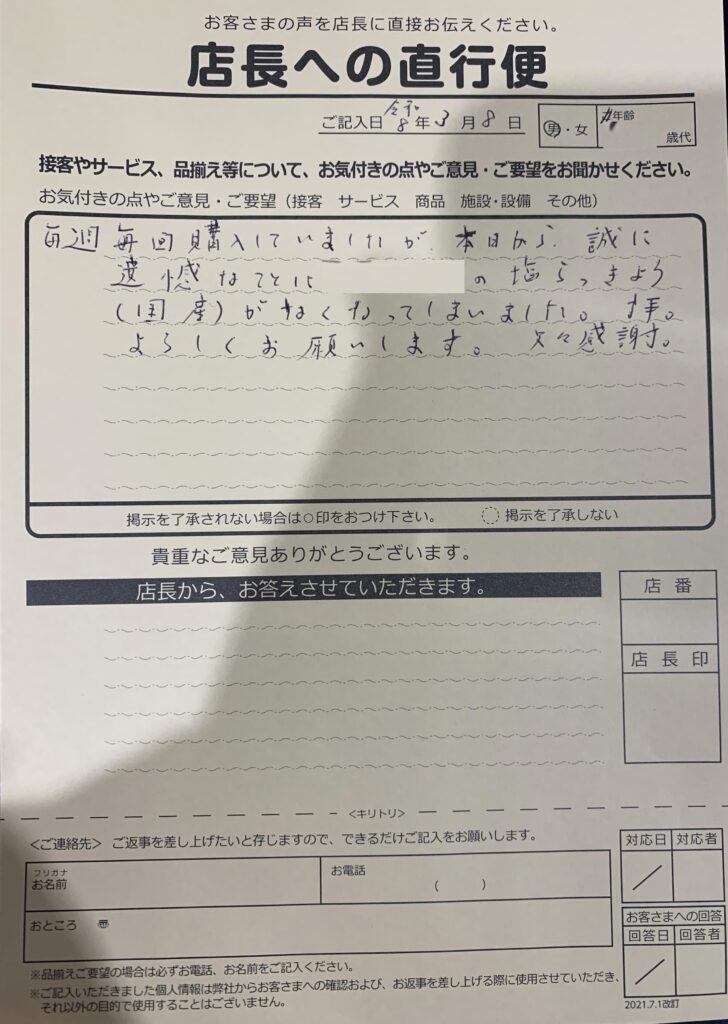 お客さまの声を店長に直接お伝えください。
店長への直行便
ご記入日 令和8年3月8日 男・女 年齢 歳代
接客やサービス、品揃え等について、お気付きの点やご意見・ご要望をお聞かせください。
お気付きの点やご意見・ご要望（接客 サービス 商品 施設・設備 その他）
毎週 毎回購入していましたが、本日から、誠に
遺憾なことに の塩らっきょう
（国産）がなくなってしまいました。拝。
よろしくお願いします。 欠々感謝。
掲示を了承されない場合は○印をおつけ下さい。 掲示を了承しない
貴重なご意見ありがとうございます。
店長から、お答えさせていただきます。
店番
店長印
＜キリトリ＞
＜ご連絡先＞ ご返事を差し上げたいと存じますので、できるだけご記入をお願いします。
フリガナ
お名前
お電話
（ ）
おところ 〠
対応日 対応者
／
お客さまへの回答
回答日 回答者
／
※品揃えご要望の場合は必ずお電話、お名前をご記入ください。
※ご記入いただきました個人情報は弊社からお客さまへの確認および、お返事を差し上げる際に使用させていただき、
それ以外の目的で使用することはございません。
2021.7.1改訂